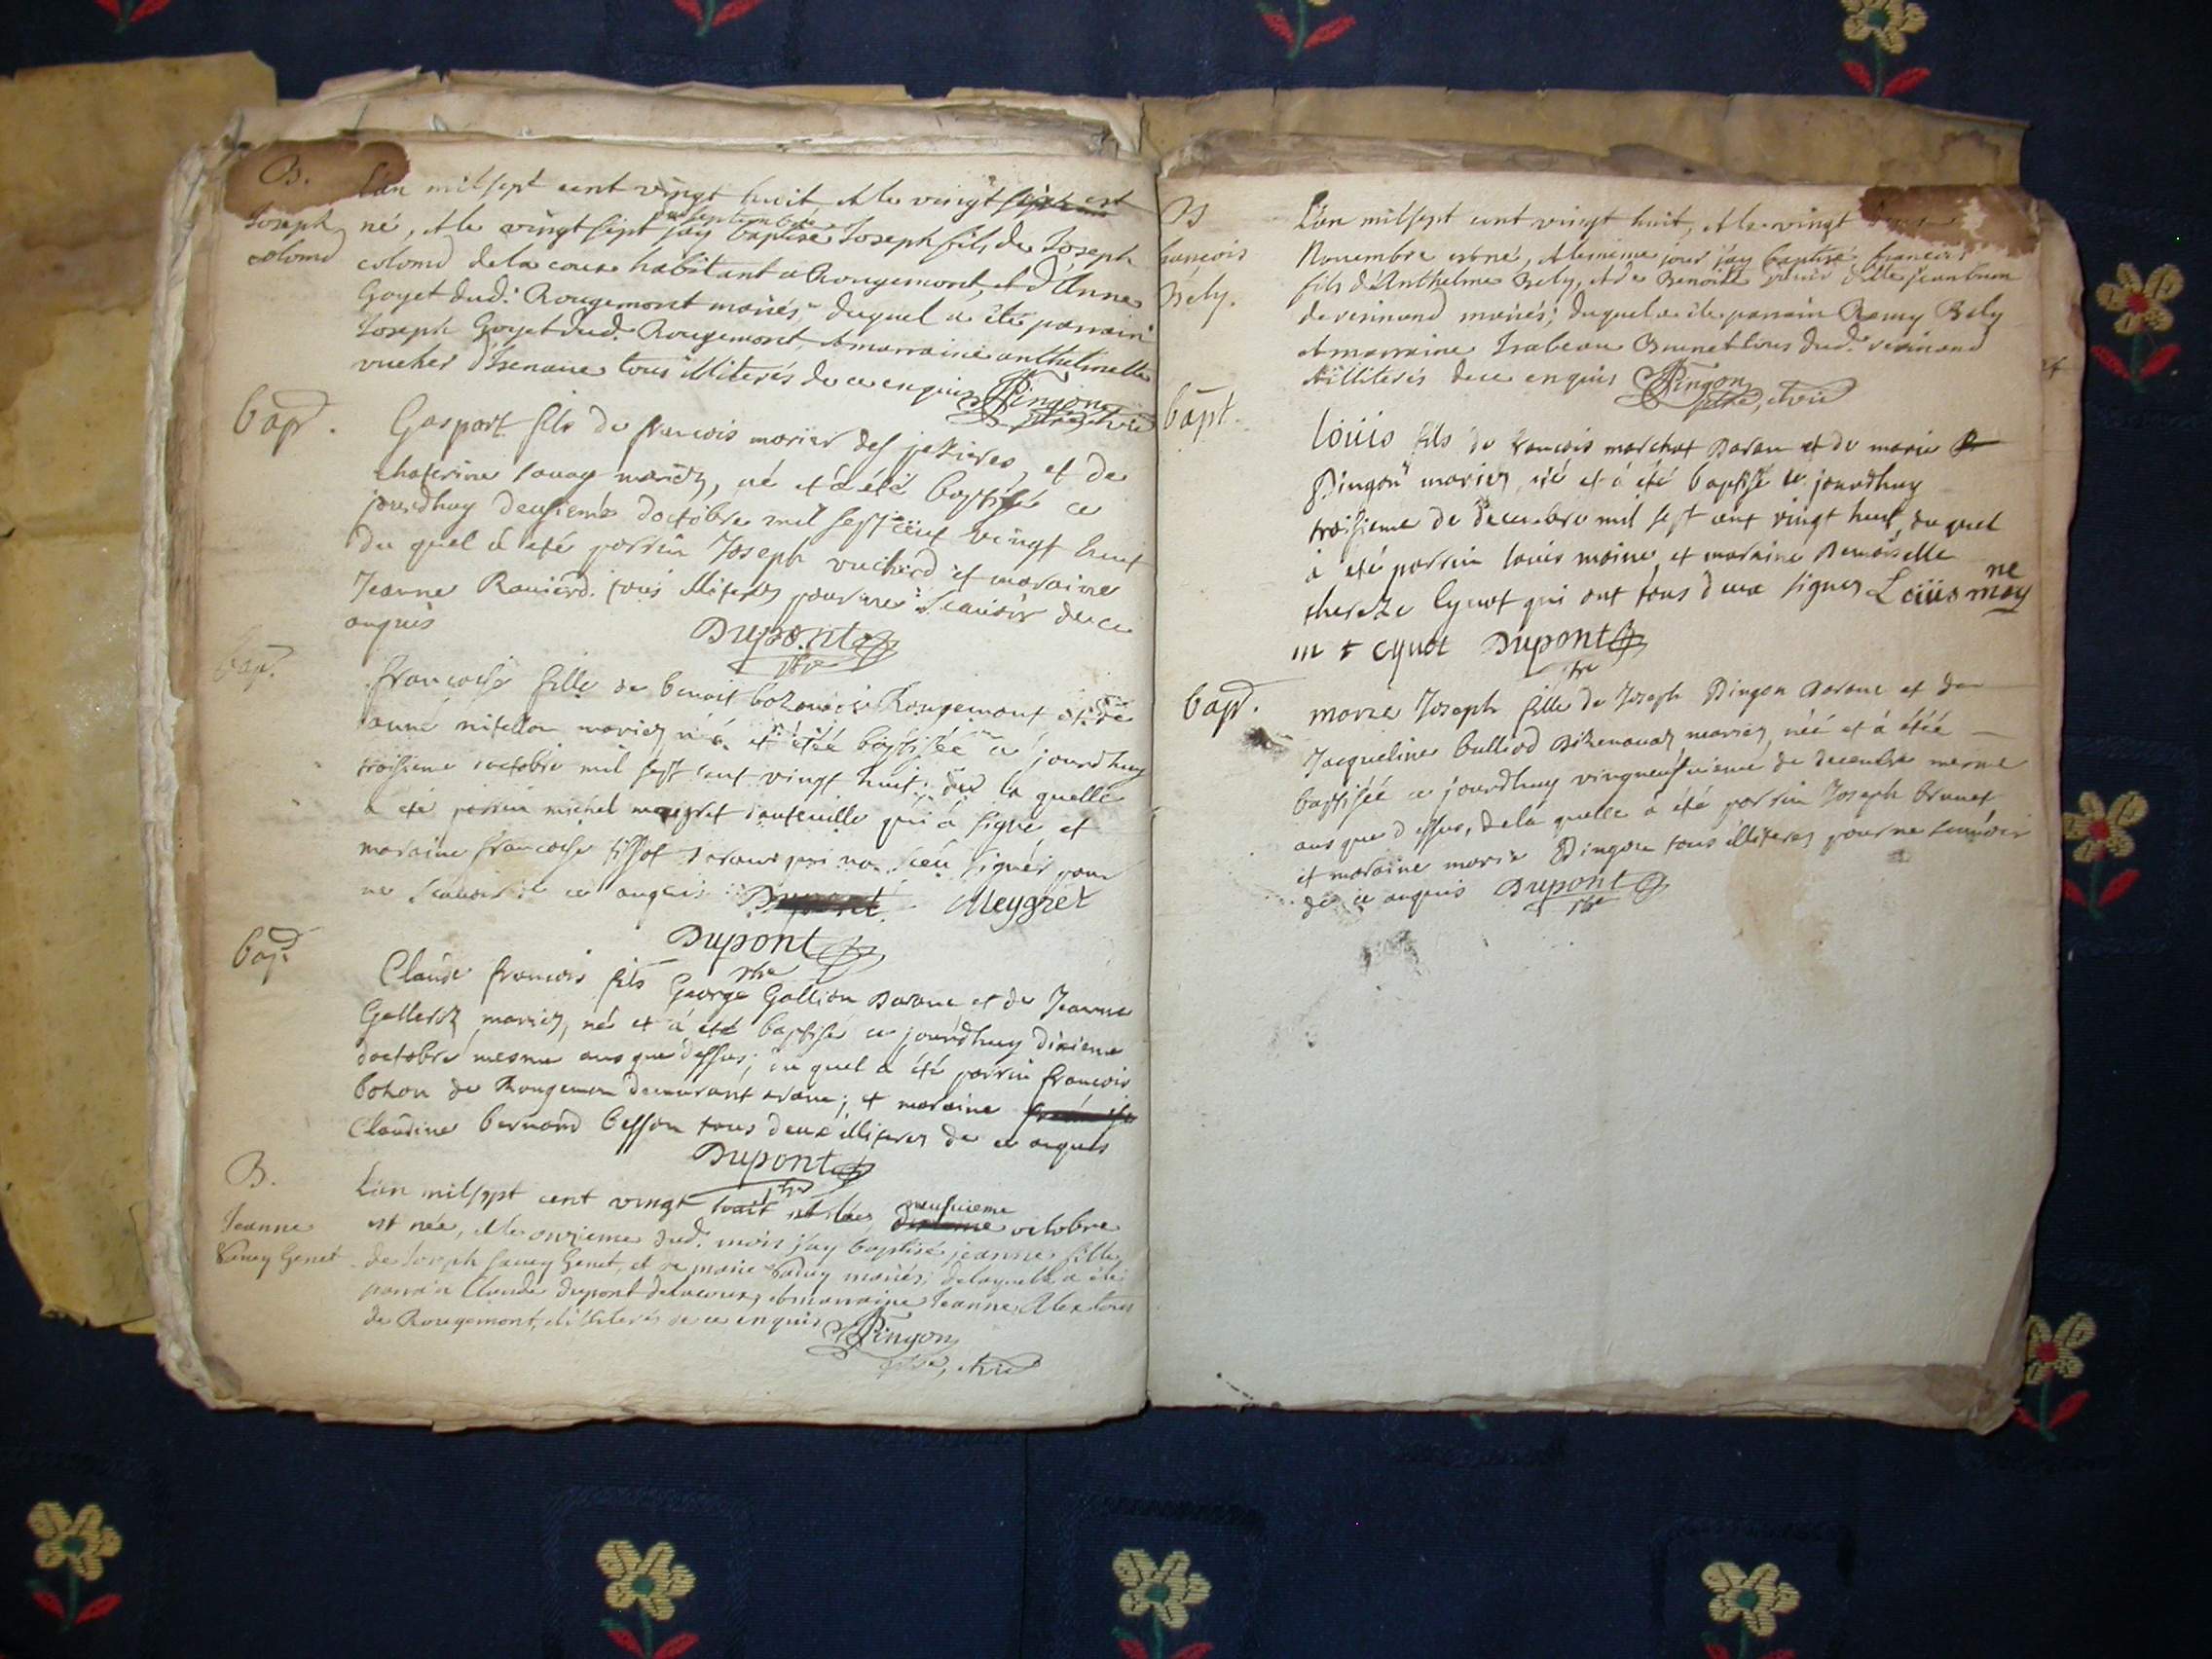 B.
Joseph
colomd
L'an mil sept cent vingt huit et le vingt
de septembre
né, et le vingt sept j'ay baptisé Joseph fils de Joseph
colomd de la coux habitant a Rougemont, et d'Anne
Goyet dud. Rougemont mariés; duquel a été parrain
Joseph Goyet dud. Rougemont, et marraine anthelmette
vucher d'Izenave tous illiterés de ce enquis Pingon
ptre, et vic
bap.
Gaspart fils de francois morier des jesieres, et de
chaterine mariez, né et a été baptisé ce
jourdhuy deusieme doctobre mil sept cent vingt huit
du quel a été porrin Joseph vucherd et maraine
Jeanne Ravierd. tous illiteres pour ne scauoir de ce
anquis Dupont
ptre
bap.
francoise fille de benoit bohon de Rougemont et de
mariez née et a étéé baptisée ce jourdhuy
troisieme octobre mil sept cent vingt huit; de la quelle
a été porrin michel meygret qui a signé et
maraine francoise tissot darane qui na sceu signér pour
ne scauoir de ce anquis Dupont Meygret
Dupont
ptre
bap.
Claude francois fils George Gallion Darane et de Jeanne
mariez, né et a été baptisé ce jourdhuy dixieme
doctobre mesme ans que dessus; du quel a été porrin francois
bohon de Rougemon demurant arane; et maraine
Claudine bernard besson tous deux illiteres de ce anquis
Dupont
ptre
B.
Jeanne
Savey Genet
L'an mil sept cent vingt huit et le neufvieme octobre
est née, et le onzieme dud. mois j'ay baptisé jeanne fille
de Joseph Savey Genet, et de marie Savey mariés; delaquelle a été
parrain Claude dupont delacoux, et marraine Jeanne Alex tous
de Rougemont, illiterés de ce enquis Pingon
ptre, et vic
B
francois
Bely.
L'an mil sept cent vingt huit, et le vingt
Novembre est né, et le meme jour j'ay baptisé francois
fils d'Anthelme Bely, et de Benoite
de resinand mariés; duquel a été parrain Remy Bely
et marraine Isabeau Brunet tous dud. resinand
et illiterés de ce enquis Pingon
ptre, et vic
bapt.
loüis fils de francois marchat Daran et de marie
Pingon mariez, né et a été baptisé ce jourdhuy
troisieme de decembre mil sept cent vingt huit, du quel
a été porrin louis moine, et maraine Demoiselle
thereze Cyvot qui ont tous deux signez Loüis moy
ne
m t cyvot Dupont
ptre
bap.
marie Joseph fille de Joseph Pingon Darane et de
Jacqueline bulliod Dizenauaz mariez, néé et a étéé
baptiséé ce jourdhuy vingneufuieme de decembre mesme
ans que dessus, dela quelle a été porrin Joseph brunet
et maraine marie Pingon tous illiteres pour ne scauoir
de ce anquis Dupont
ptre